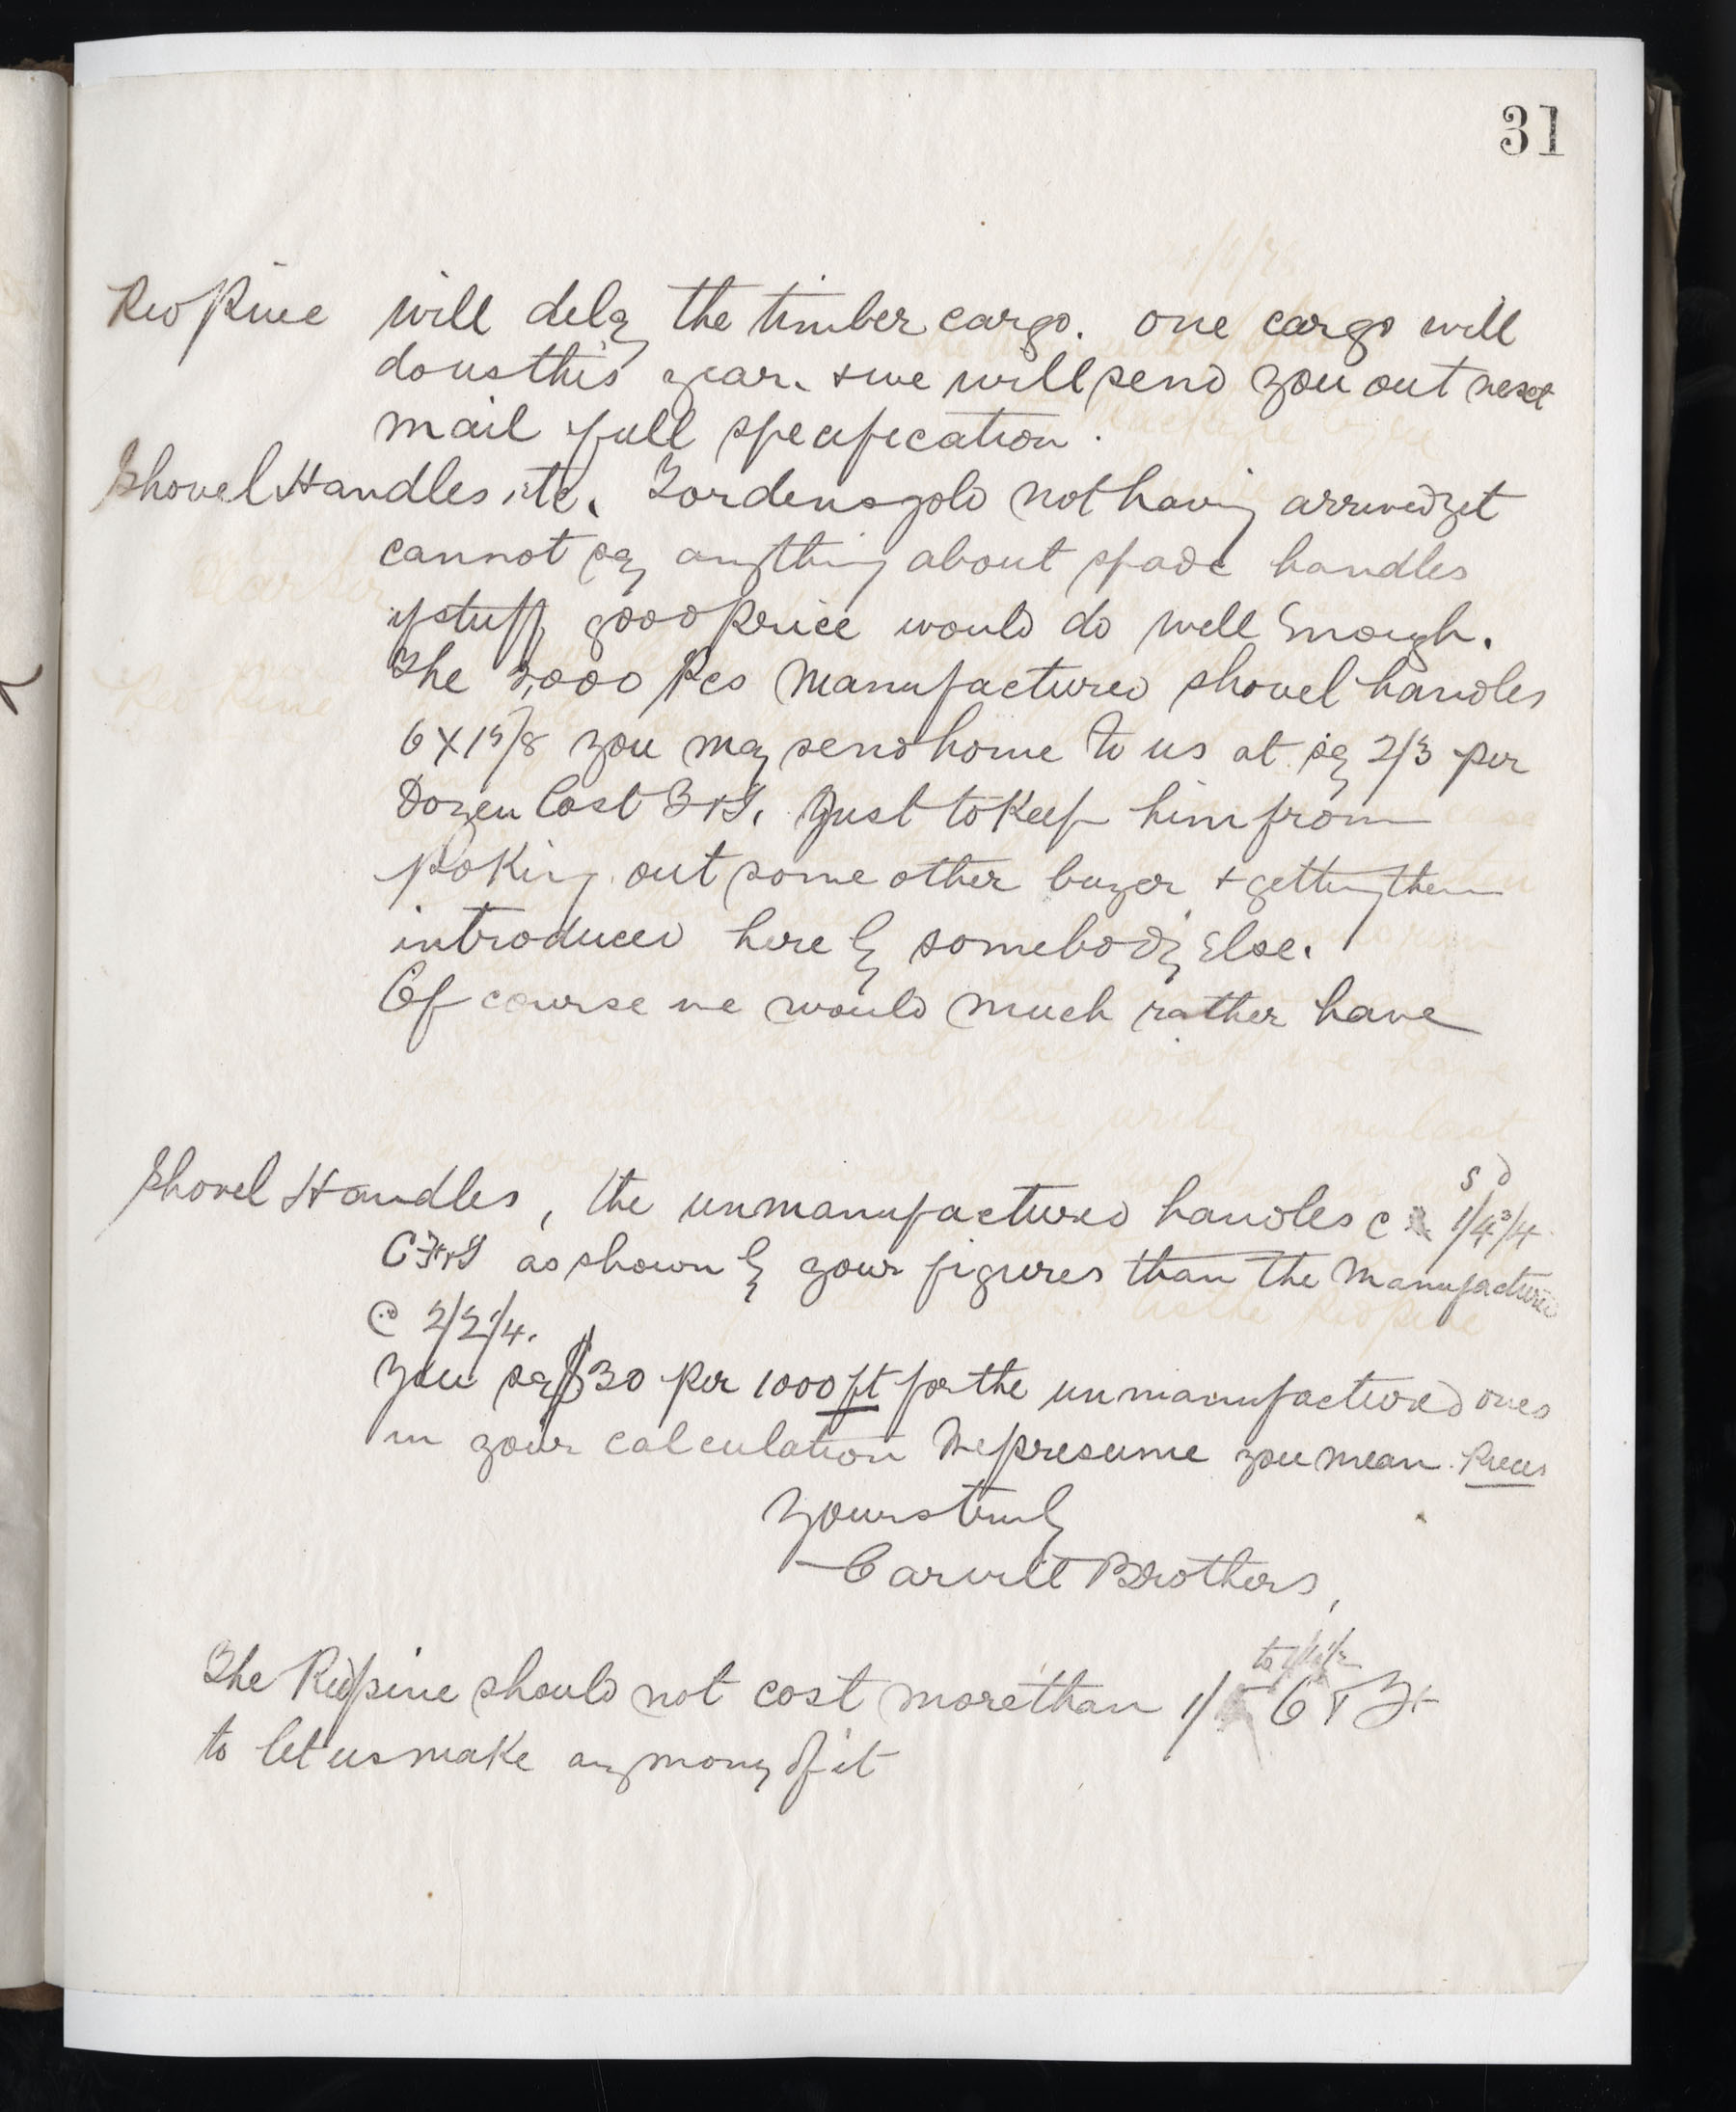 31
Red Pine will delay the timber cargo. One cargo will
do us this year. & we will send you out next
mail full specification.
Shovel Handles etc. Tordensgold not having arrived yet
cannot say anything about spade handles
if stuff good price would do well enough.
The 2,000 pcs manufactured shovel handles
6 x 1 5/8 you may send home to us at say 2/3 per
Dozen Cost F & I. Just to keep him from
poking out some other buyer & getting them
introduced here by somebody Else.
Of course we would much rather have
Shovel Handles, the unmanufactured handles @ 1/4 3/4
s d
C F & I as shown by your figures than the manufactured
@ 2/2 1/4.
You say $30 per 1000 ft for the unmanufactured ones
in your calculation We presume you mean Pieces
Yours truly
Carvill Brothers,
The Red pine should not cost more than 1/
to let us make any money of it